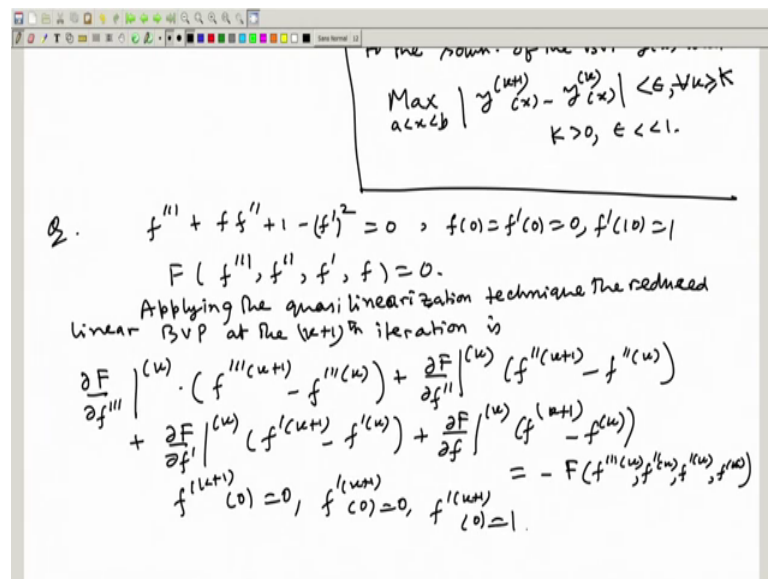 to the soln. of the BVP
Max | y^(k+1)(x) - y^(k)(x) | < ε, ∀ k ≥ K
a<x<b
K > 0, ε << 1.
Q. f''' + f f'' + 1 - (f')^2 = 0 , f(0) = f'(0) = 0, f'(10) = 1
F ( f''', f'', f', f ) = 0.
Applying the quasilinearization technique the reduced
linear BVP at the (k+1)th iteration is
∂F/∂f''' |^(k) . ( f'''^(k+1) - f'''^(k) ) + ∂F/∂f'' |^(k) ( f''^(k+1) - f''^(k) )
+ ∂F/∂f' |^(k) ( f'^(k+1) - f'^(k) ) + ∂F/∂f |^(k) ( f^(k+1) - f^(k) )
= - F( f'''^(k), f''^(k), f'^(k), f^(k) )
f'^(k+1)(0) = 0, f'^(k+1)(0) = 0, f'^(k+1)(0) = 1.